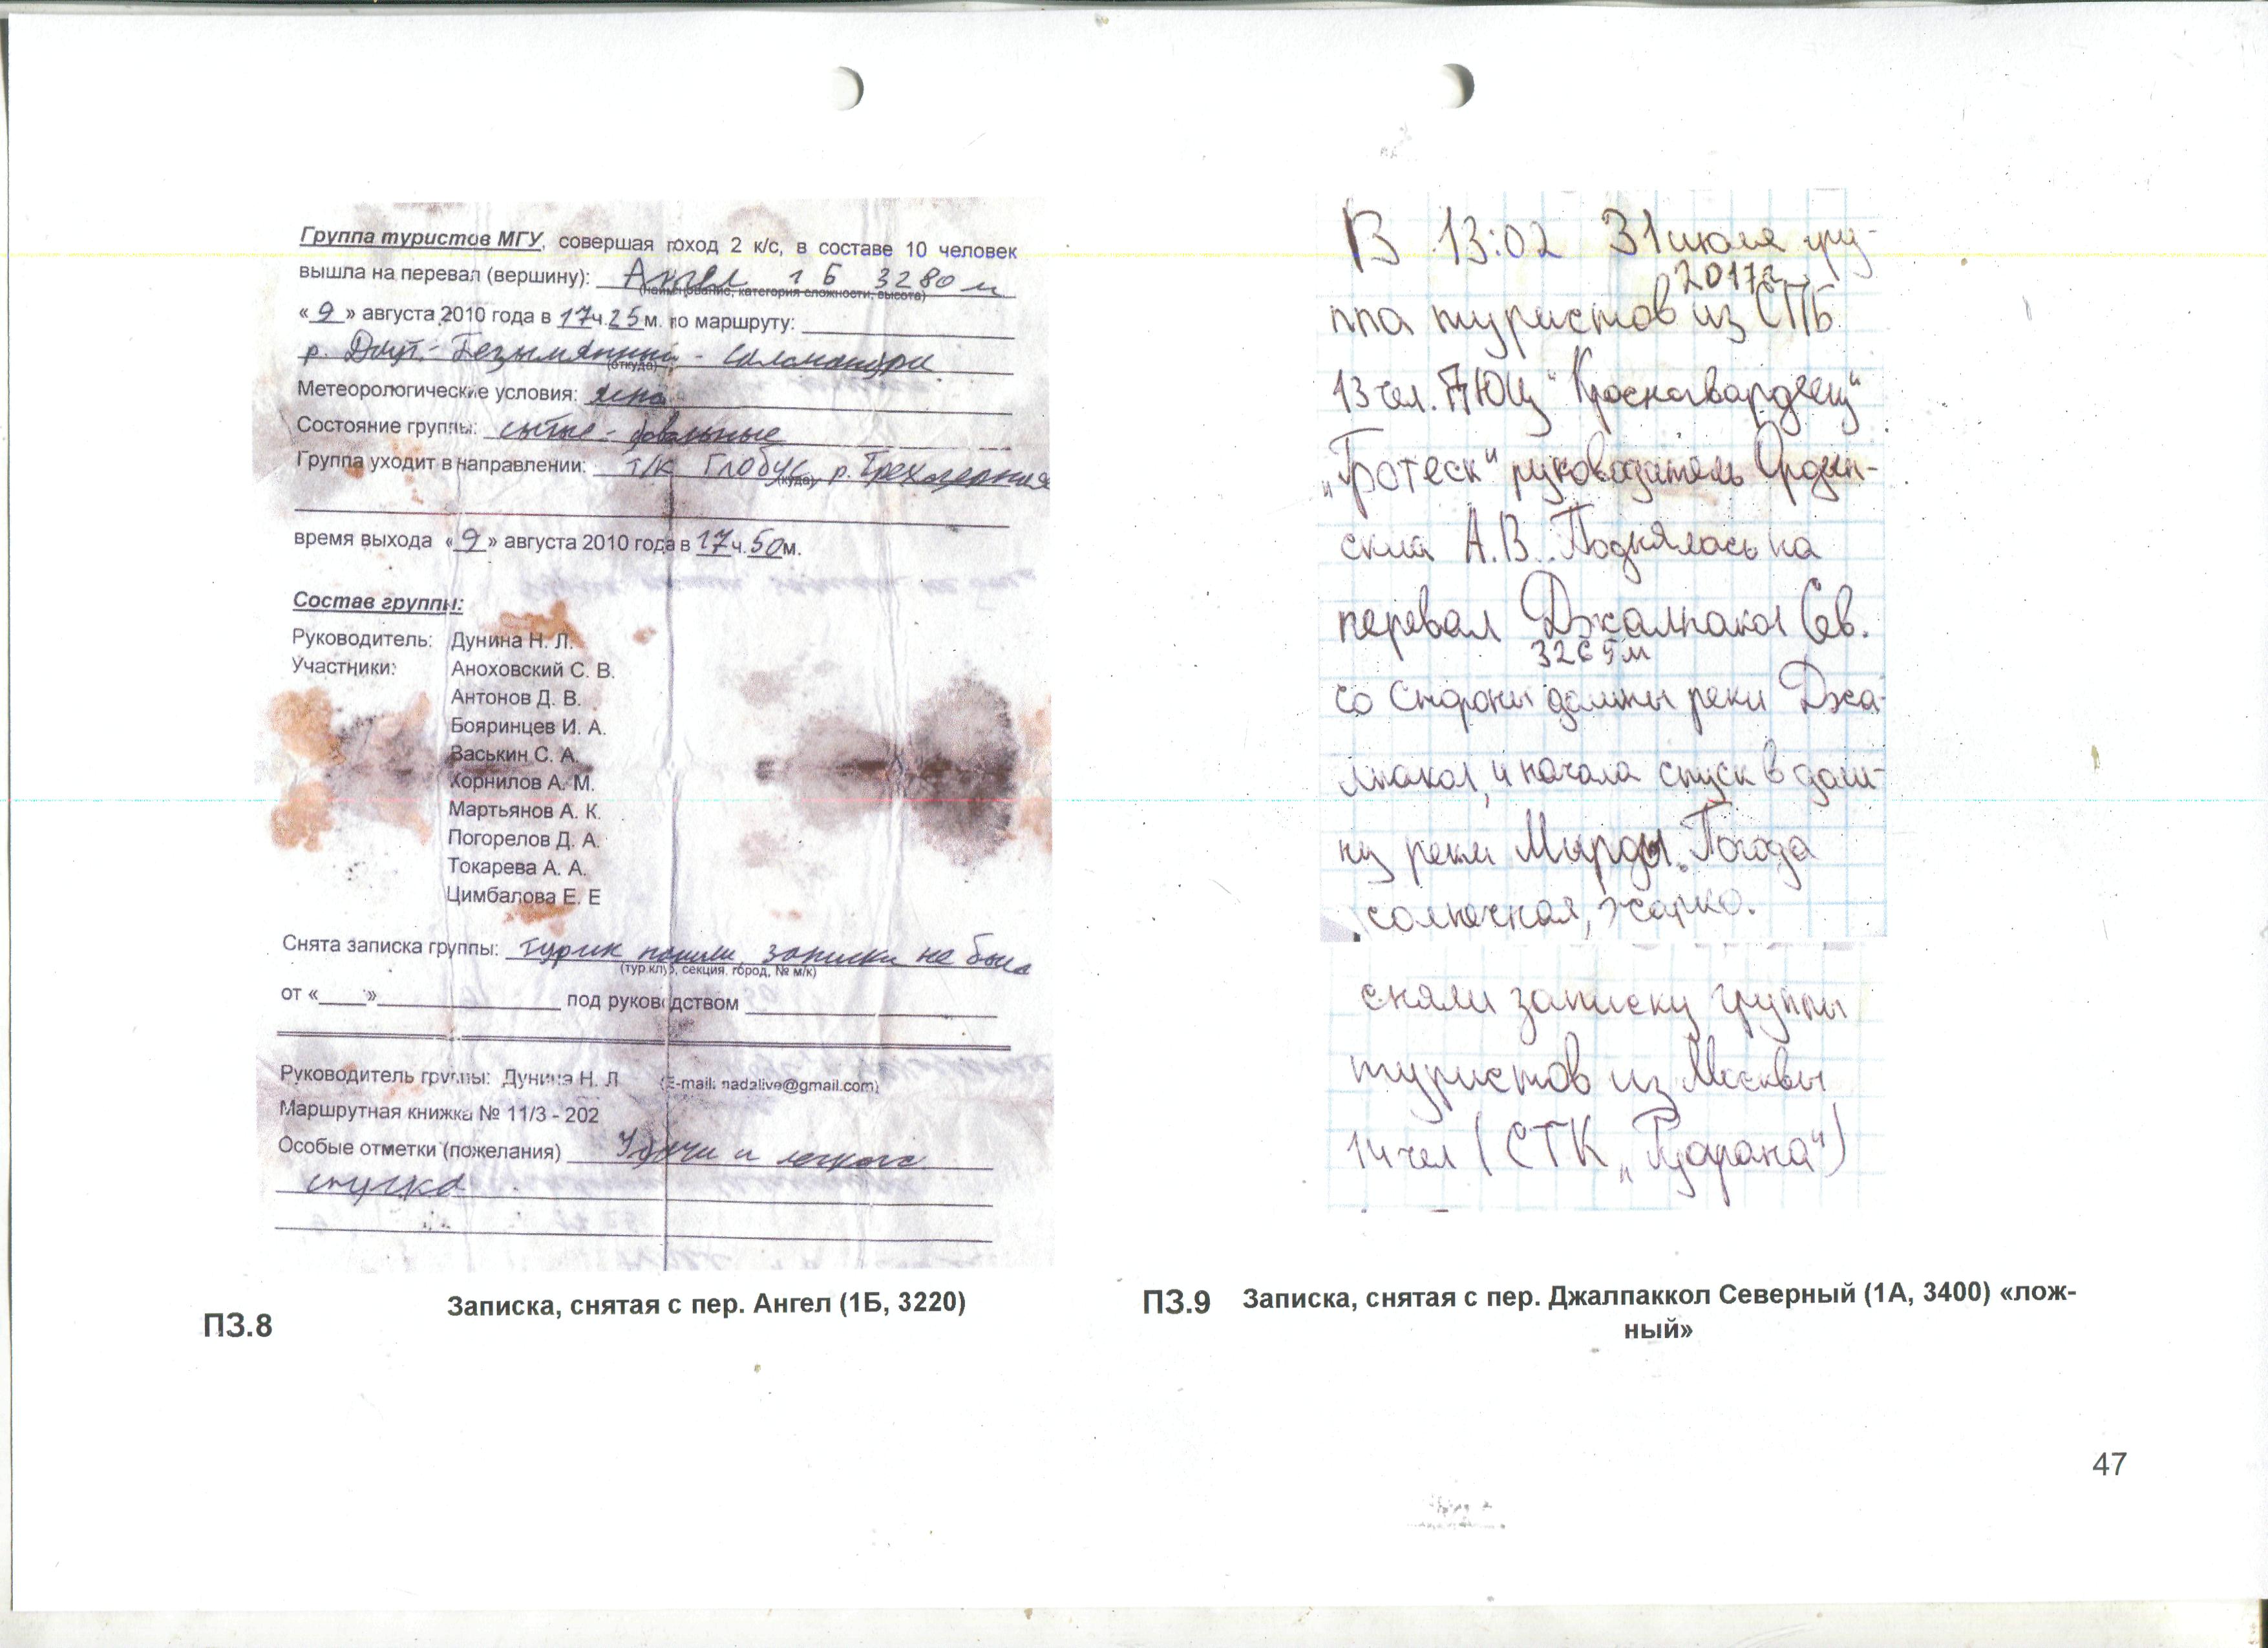 Группа туристов МГУ, совершая поход 2 к/с, в составе 10 человек
вышла на перевал (вершину): Ангел 1 Б 3280 м
(наименование, категория сложности, высота)
«9» августа 2010 года в 17ч.25м. по маршруту:
р. Даут - Безымянный - Саламандра
(откуда)
Метеорологические условия: ясно
Состояние группы: сытые - довольные
Группа уходит в направлении: т/к Глобус, р. Трехозерная
(куда)
время выхода «9» августа 2010 года в 17ч.50м.
Состав группы:
Руководитель: Дунина Н. Л.
Участники: Аноховский С. В.
Антонов Д. В.
Бояринцев И. А.
Васькин С. А.
Корнилов А. М.
Мартьянов А. К.
Погорелов Д. А.
Токарева А. А.
Цимбалова Е. Е
Снята записка группы: турик нашли, записки не было
(тур.клуб, секция, город, № м/к)
от «____»____ под руководством
Руководитель группы: Дунина Н. Л (E-mail: nadalive@gmail.com)
Маршрутная книжка № 11/3 - 202
Особые отметки (пожелания) Удачи и легкого
спуска
ПЗ.8
Записка, снятая с пер. Ангел (1Б, 3220)
В 13:02 31 июля гру-
2017г.
ппа туристов из СПБ
13 чел. ДЮЦ "Красногвардеец"
„Гротеск" руководитель Ордын-
ская А.В. Поднялась на
перевал Джалпакол Сев.
3265м
со стороны долины реки Джа-
лпакол, и начала спуск в доли-
ну реки Мырды. Погода
солнечная, жарко.
сняли записку группы
туристов из Москвы
14 чел (СТК „Родарана")
ПЗ.9 Записка, снятая с пер. Джалпаккол Северный (1А, 3400) «лож-
ный»
47